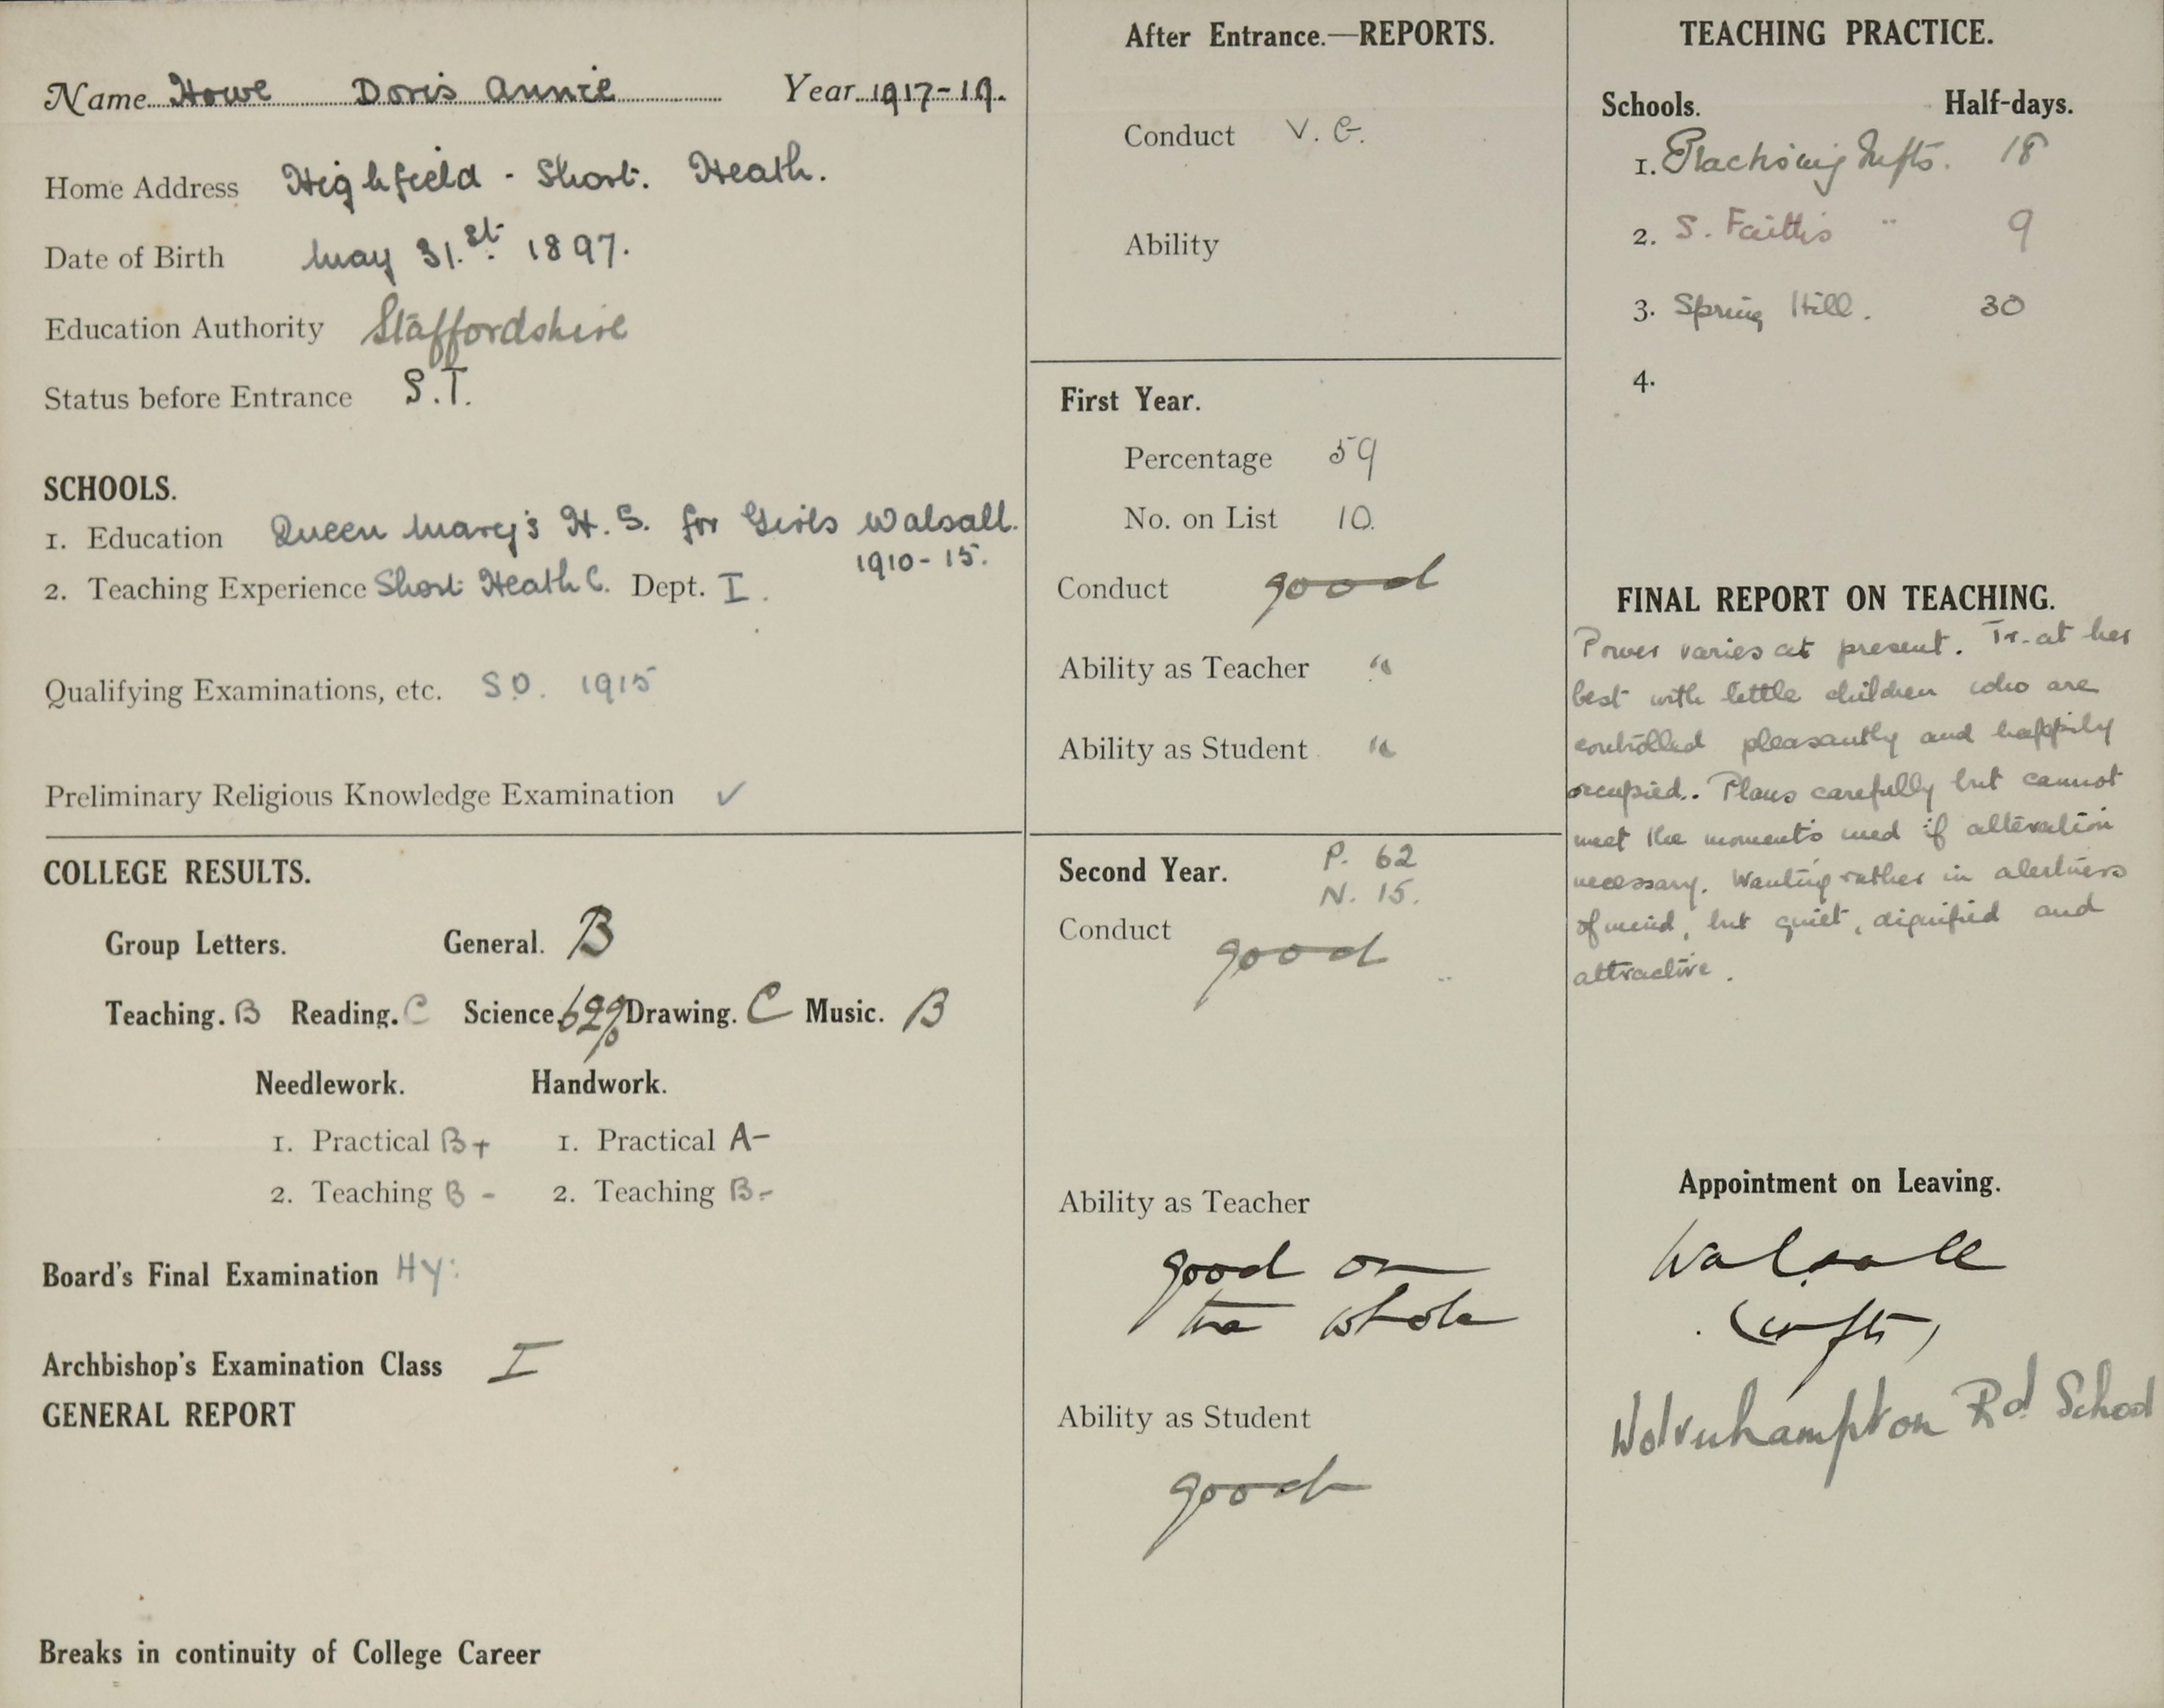 Name Howe Doris Annie Year 1917-19.
Home Address Highfield - Short. Heath.
Date of Birth May 31.st 1897.
Education Authority Staffordshire
Status before Entrance S.T.
SCHOOLS.
1. Education Queen Mary's H. S. for Girls Walsall.
1910-15.
2. Teaching Experience Short Heath C. Dept. I.
Qualifying Examinations, etc. S.O. 1915
Preliminary Religious Knowledge Examination ✓
COLLEGE RESULTS.
Group Letters. General. B
Teaching. B Reading. C Science. 62% Drawing. C Music. B
Needlework. Handwork.
1. Practical B+ 1. Practical A-
2. Teaching B - 2. Teaching B-
Board's Final Examination Hy:
Archbishop's Examination Class I
GENERAL REPORT
Breaks in continuity of College Career
After Entrance.—REPORTS.
Conduct V. G.
Ability
First Year.
Percentage 59
No. on List 10.
Conduct good
Ability as Teacher "
Ability as Student "
Second Year. P. 62
N. 15.
Conduct
good
Ability as Teacher
good on
the whole
Ability as Student
good
TEACHING PRACTICE.
Schools. Half-days.
1. Practising Infts. 18
2. S. Faith's " 9
3. Spring Hill. 30
4.
FINAL REPORT ON TEACHING.
Power varies at present. Is at her
best with little children who are
controlled pleasantly and happily
occupied.. Plans carefully but cannot
meet the moment's need if alteration
necessary. Wanting rather in alertness
of mind, but quiet, dignified and
attractive.
Appointment on Leaving.
Walsall
(Infts)
Wolverhampton Rd School